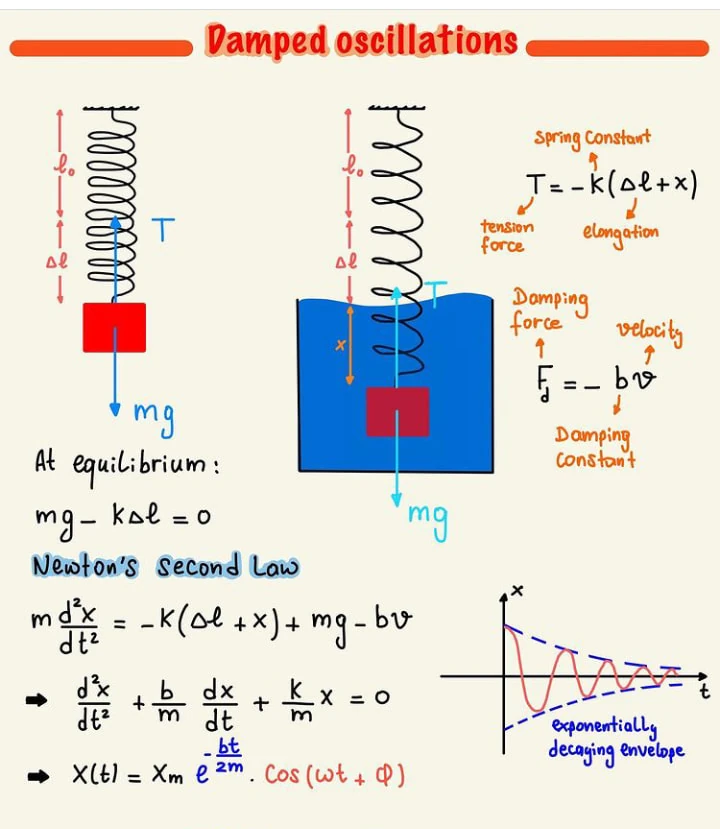 Damped oscillations
l₀
Δl
T
mg
l₀
Δl
x
T
mg
Spring Constant
T = - K(Δl + x)
tension force
elongation
Damping force
velocity
F_d = - bv
Damping Constant
At equilibrium :
mg - KΔl = 0
Newton's second Law
m d²x/dt² = - K(Δl + x) + mg - bv
➡ d²x/dt² + b/m dx/dt + k/m x = 0
➡ X(t) = Xm e^(-bt/2m) . Cos(ωt + Φ)
x
t
exponentially
decaying envelope